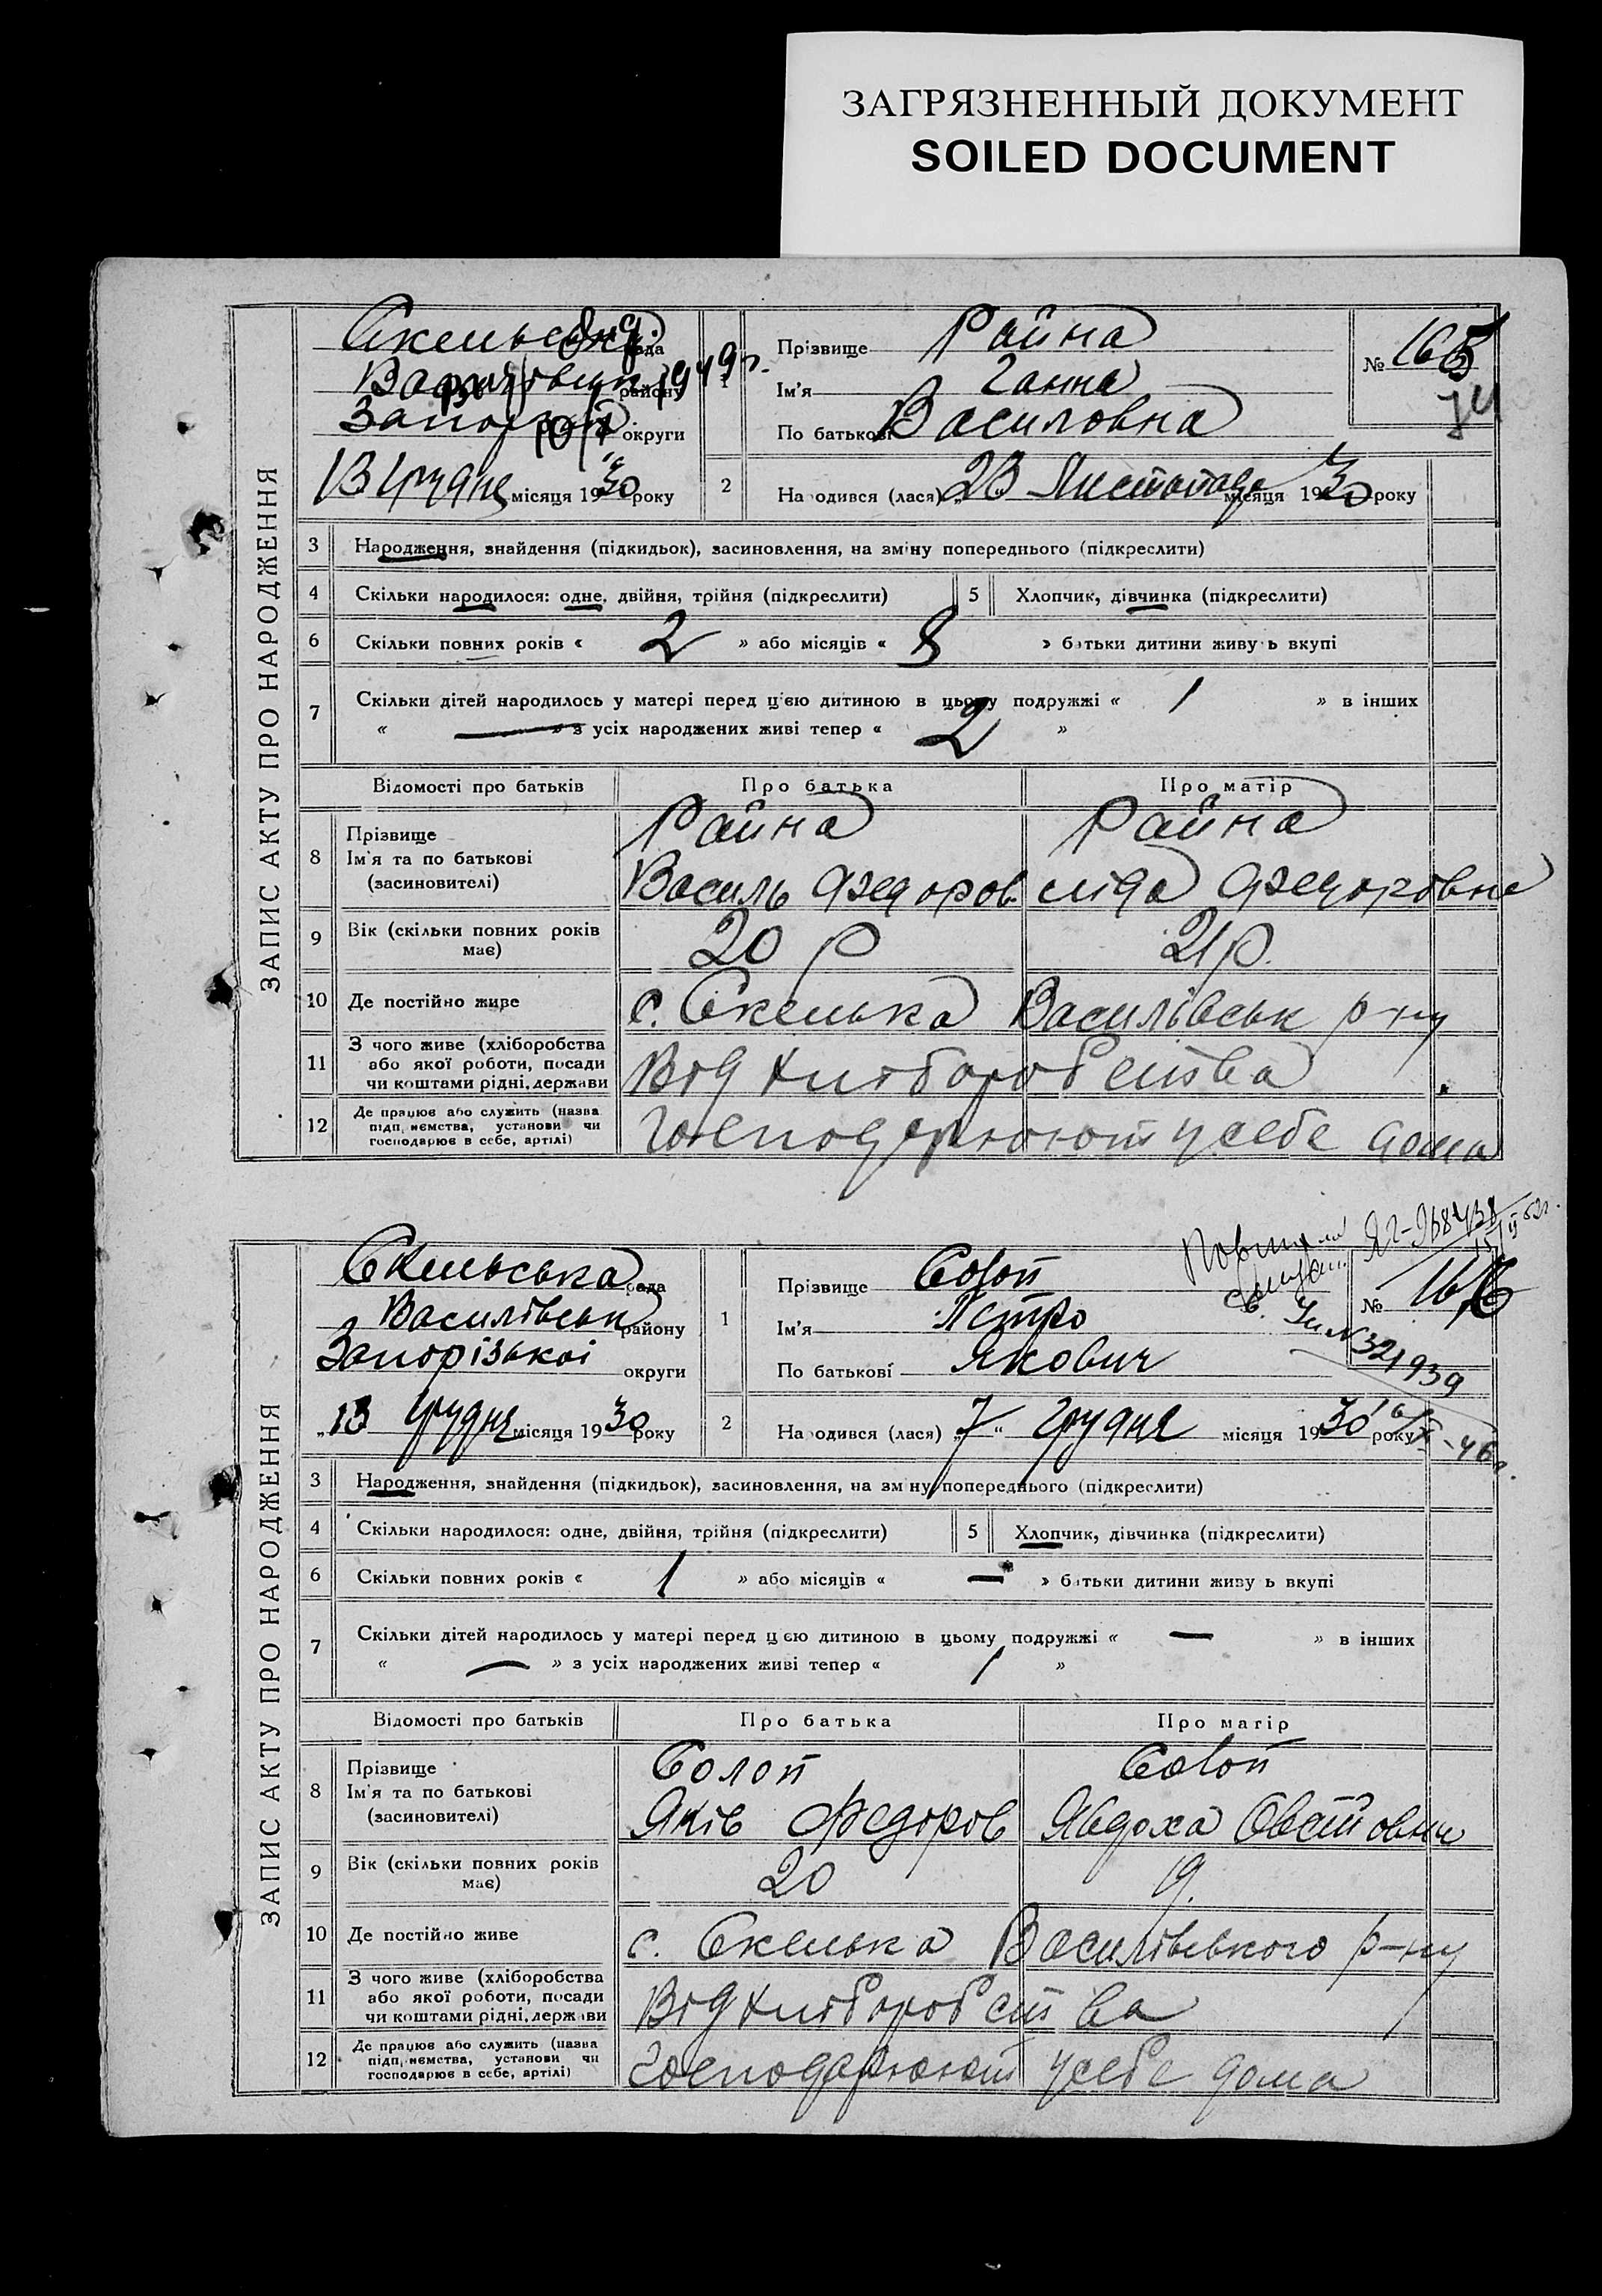 ЗАГРЯЗНЕННЫЙ ДОКУМЕНТ
SOILED DOCUMENT
ЗАПИС АКТУ ПРО НАРОДЖЕННЯ
Скельська рада
району
округи
13 Грудня місяця 1930 року
1
Прізвище Райна
Ім'я Ганна
По батькові Василовна
№ 165
2
Народився (лася) „23 Листопада місяця 1930 року
3 Народження, знайдення (підкидьок), засиновлення, на зміну попереднього (підкреслити)
4 Скільки народилося: одне, двійня, трійня (підкреслити)
5 Хлопчик, дівчинка (підкреслити)
6 Скільки повних років « 2 » або місяців « 8 » батьки дитини живуть вкупі
7 Скільки дітей народилось у матері перед цією дитиною в цьому подружжі « 1 » в інших
« — » з усіх народжених живі тепер « 2 »
Відомості про батьків Про батька Про матір
8 Прізвище
Ім'я та по батькові
(засиновителі)
Райна Райна
Василь Федоров. Федоровна
9 Вік (скільки повних років має)
20 р 21 р.
10 Де постійно живе
с. Скелька Василівськ р-ну
11 З чого живе (хліборобства
або якої роботи, посади
чи коштами рідні, держави
Від хліборобства
12 Де працює або служить (назва
підприємства, установи чи
господарює в себе, артілі)
Господарюют у себе дома
ЗАПИС АКТУ ПРО НАРОДЖЕННЯ
Скельська рада
Василівськ району
Запорізькоі округи
„13 Грудня місяця 1930 року
1
Прізвище Солоп
Ім'я Петро
По батькові Якович
№ 166
№ 321939
2
Народився (лася) „7“ Грудня місяця 1930 року
3 Народження, знайдення (підкидьок), засиновлення, на зміну попереднього (підкреслити)
4 Скільки народилося: одне, двійня, трійня (підкреслити)
5 Хлопчик, дівчинка (підкреслити)
6 Скільки повних років « 1 » або місяців « — » батьки дитини живуть вкупі
7 Скільки дітей народилось у матері перед цією дитиною в цьому подружжі « — » в інших
« — » з усіх народжених живі тепер « 1 »
Відомості про батьків Про батька Про матір
8 Прізвище
Ім'я та по батькові
(засиновителі)
Солоп Солоп
Яків Федоров Явдоха
9 Вік (скільки повних років має)
20 19.
10 Де постійно живе
с. Скелька Василівського р-ну
11 З чого живе (хліборобства
або якої роботи, посади
чи коштами рідні, держави
Від хліборобства
12 Де працює або служить (назва
підприємства, установи чи
господарює в себе, артілі)
Господарюют у себе дома